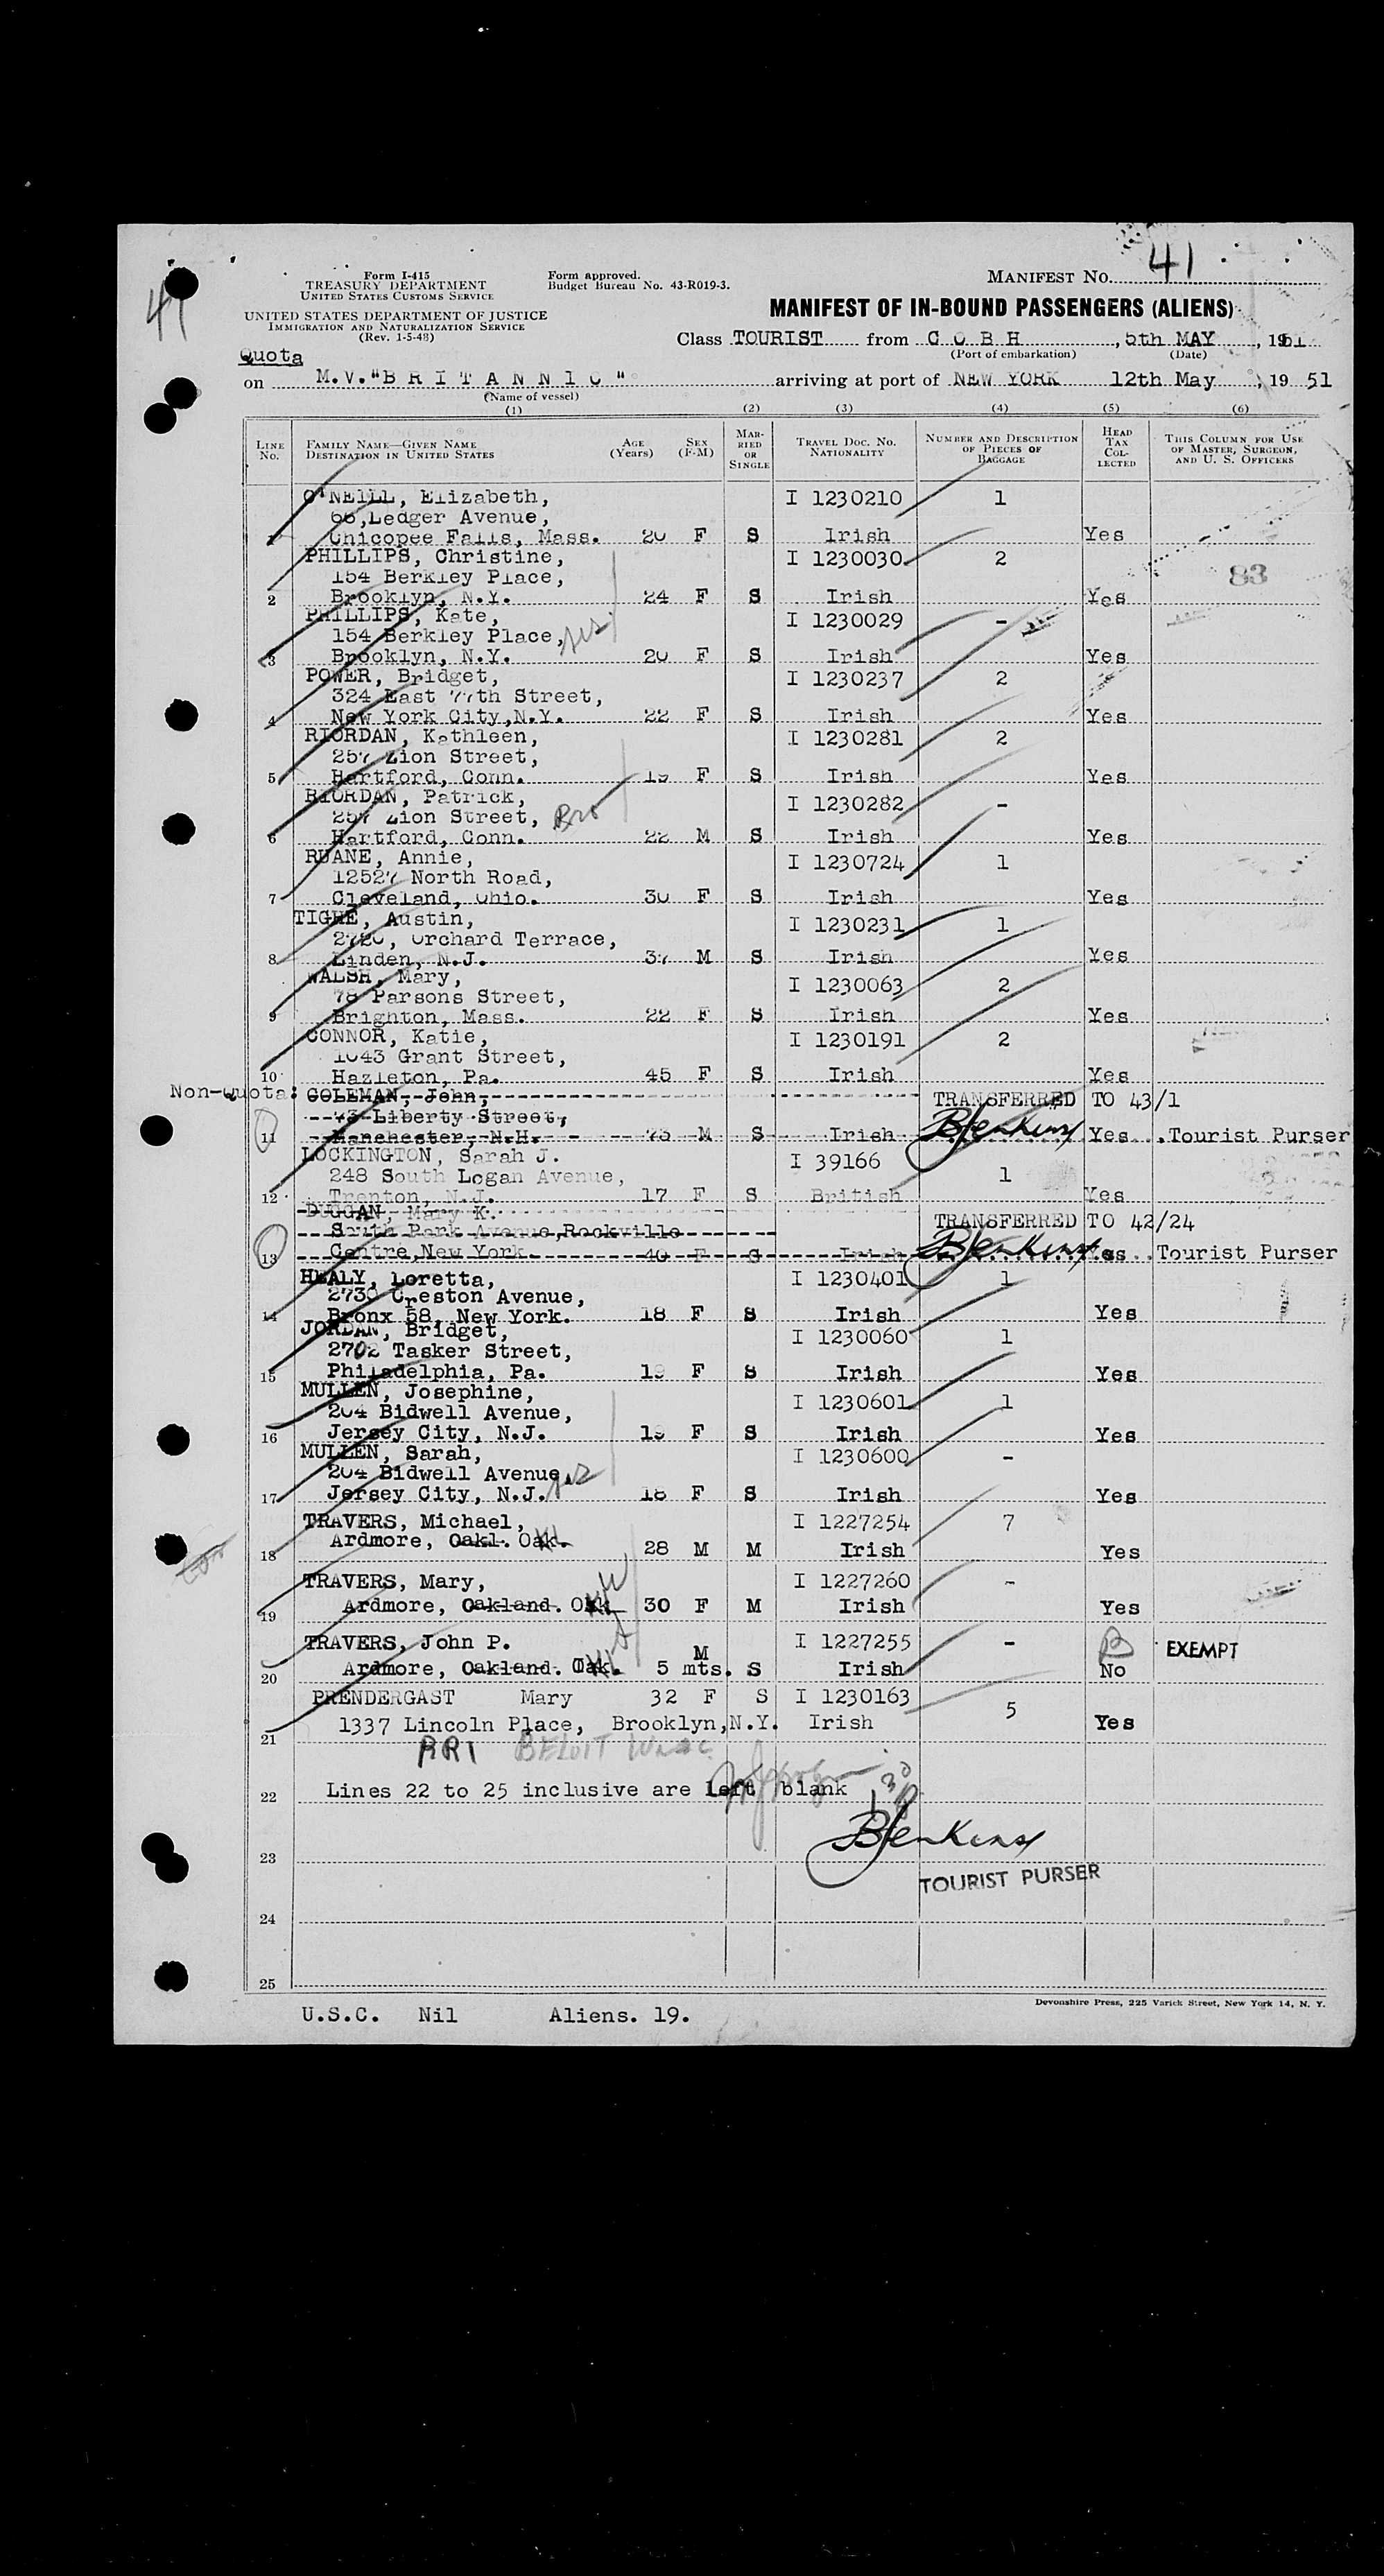 41
41
Form I-415
TREASURY DEPARTMENT
UNITED STATES CUSTOMS SERVICE
UNITED STATES DEPARTMENT OF JUSTICE
IMMIGRATION AND NATURALIZATION SERVICE
(Rev. 1-5-48)
Form approved.
Budget Bureau No. 43-R019-3.
MANIFEST NO.
MANIFEST OF IN-BOUND PASSENGERS (ALIENS)
Class TOURIST from C O B H , 5th MAY , 1951
(Port of embarkation) (Date)
Quota
on M.V. "B R I T A N N I C" arriving at port of NEW YORK 12th May , 19 51
(Name of vessel)
(1) (2) (3) (4) (5) (6)
LINE NO. FAMILY NAME—GIVEN NAME DESTINATION IN UNITED STATES AGE (Years) SEX (F-M) MARRIED OR SINGLE TRAVEL DOC. NO. NATIONALITY NUMBER AND DESCRIPTION OF PIECES OF BAGGAGE HEAD TAX COLLECTED THIS COLUMN FOR USE OF MASTER, SURGEON, AND U. S. OFFICERS
O'NEILL, Elizabeth, I 1230210 1
66, Ledger Avenue,
1 Chicopee Falls, Mass. 20 F S Irish Yes
PHILLIPS, Christine, I 1230030 2
154 Berkley Place, 83
2 Brooklyn, N.Y. 24 F S Irish Yes
PHILLIPS, Kate, I 1230029 -
154 Berkley Place,
3 Brooklyn, N.Y. 20 F S Irish Yes
POWER, Bridget, I 1230237 2
324 East 77th Street,
4 New York City, N.Y. 22 F S Irish Yes
RIORDAN, Kathleen, I 1230281 2
257 Zion Street,
5 Hartford, Conn. 19 F S Irish Yes
RIORDAN, Patrick, I 1230282 -
257 Zion Street, Bro
6 Hartford, Conn. 22 M S Irish Yes
RUANE, Annie, I 1230724 1
12527 North Road,
7 Cleveland, Ohio. 30 F S Irish Yes
TIGHE, Austin, I 1230231 1
2720, Orchard Terrace,
8 Linden, N.J. 37 M S Irish Yes
WALSH, Mary, I 1230063 2
78 Parsons Street,
9 Brighton, Mass. 22 F S Irish Yes
CONNOR, Katie, I 1230191 2
1043 Grant Street,
10 Hazleton, Pa. 45 F S Irish Yes
Non-quota: COLEMAN, John, TRANSFERRED TO 43/1
73 Liberty Street,
11 Manchester, N.H. 75 M S Irish BJenkins Yes Tourist Purser
LOCKINGTON, Sarah J. I 39166
248 South Logan Avenue, 1
12 Trenton, N.J. 17 F S British Yes
DUGGAN, Mary K. TRANSFERRED TO 42/24
South Park Avenue, Rockville
13 Centre, New York. 40 F S Irish BJenkins Yes Tourist Purser
HEALY, Loretta, I 1230401 1
2730 Creston Avenue,
14 Bronx 58, New York. 18 F S Irish Yes
JORDAN, Bridget, I 1230060 1
2702 Tasker Street,
15 Philadelphia, Pa. 19 F S Irish Yes
MULLEN, Josephine, I 1230601 1
204 Bidwell Avenue,
16 Jersey City, N.J. 19 F S Irish Yes
MULLEN, Sarah, I 1230600 -
204 Bidwell Avenue,
17 Jersey City, N.J. 18 F S Irish Yes
TRAVERS, Michael, I 1227254 7
Ardmore, Oakl. Oak.
18 28 M M Irish Yes
TRAVERS, Mary, I 1227260 -
19 Ardmore, Oakland. Oak 30 F M Irish Yes
TRAVERS, John P. M I 1227255 - EXEMPT
20 Ardmore, Oakland. Oak. 5 mts. S Irish No
PRENDERGAST Mary 32 F S I 1230163 5
1337 Lincoln Place, Brooklyn, N.Y. Irish Yes
21
RR1 BELOIT WISC
22 Lines 22 to 25 inclusive are left blank
BJenkins
23
TOURIST PURSER
24
25
Devonshire Press, 225 Varick Street, New York 14, N. Y.
U.S.C. Nil Aliens. 19.